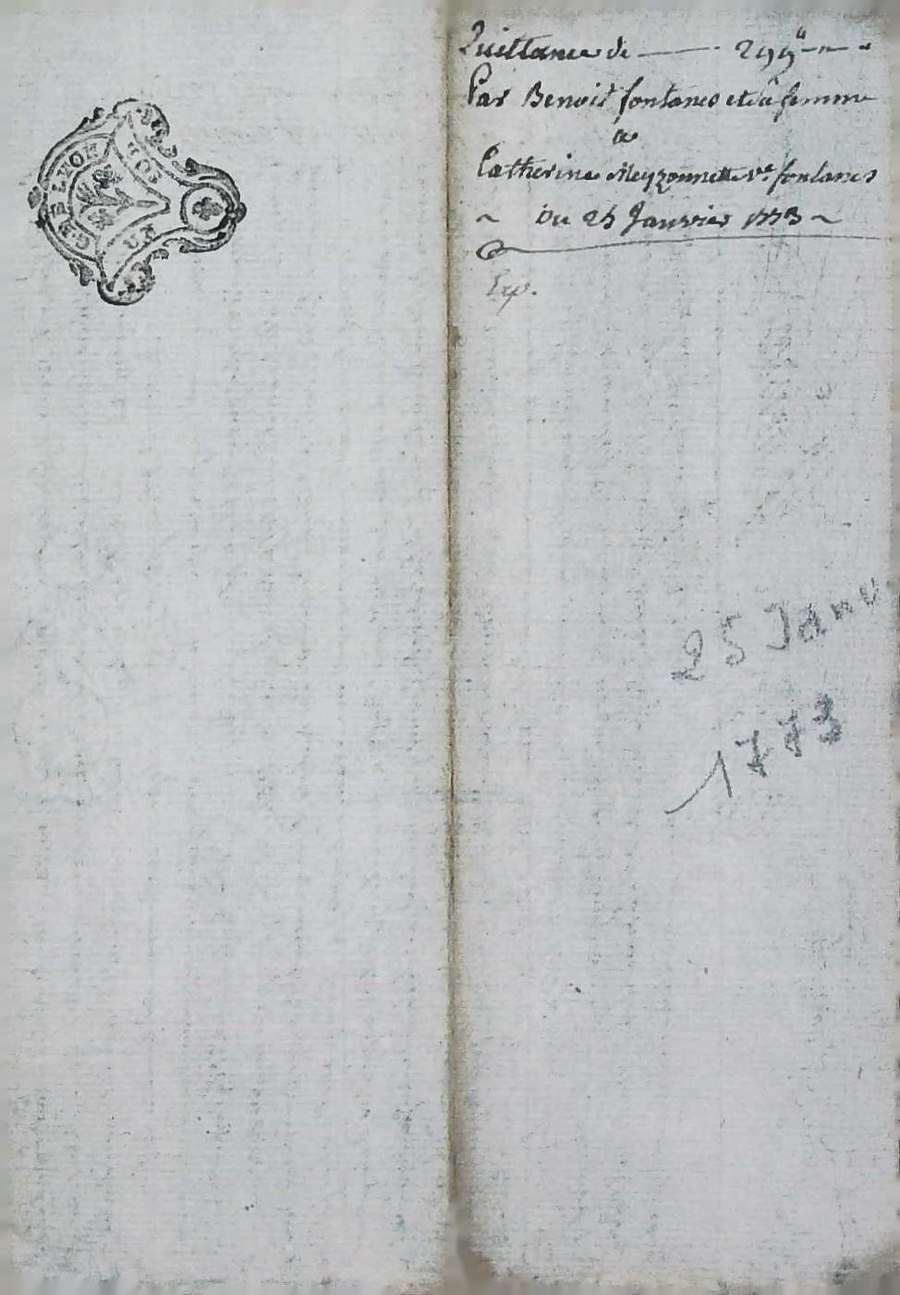 GEN LYON
Quittance de ——— 299ᵗᵗ
Par Benoit fontanes et sa femme
a
Catherine Meyzonnette vᵉ fontanes
~ Du 25 Janvier 1773 ~
Exp.
25 Janv
1773